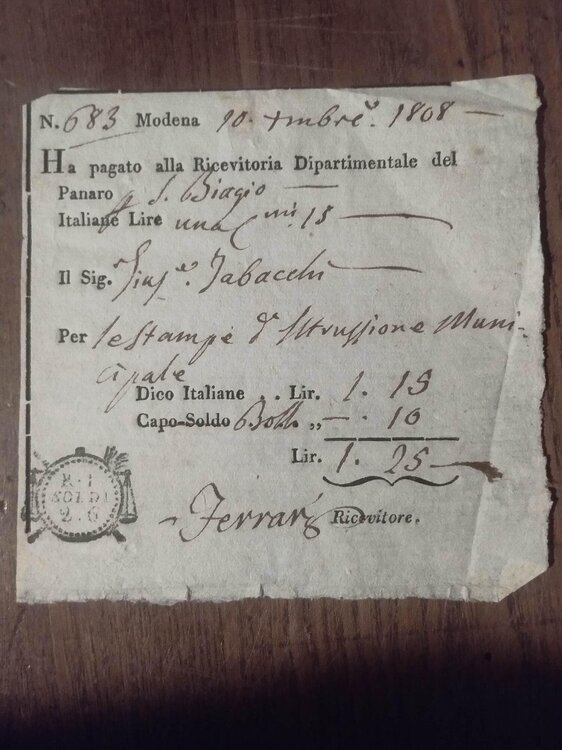 N. 683 Modena 10. xmbre. 1808
Ha pagato alla Ricevitoria Dipartimentale del
Panaro p S. Biagio
Italiane Lire una Cmi. 15
Il Sig.r Gius.e Tabacchi
Per le stampe d'Istrussione Muni-
cipale
Dico Italiane . . Lir. 1. 15
Capo-Soldo Boll. „ — . 10
Lir. 1. 25
R. I
SOLDI
2. 6
Ferrari Ricevitore.